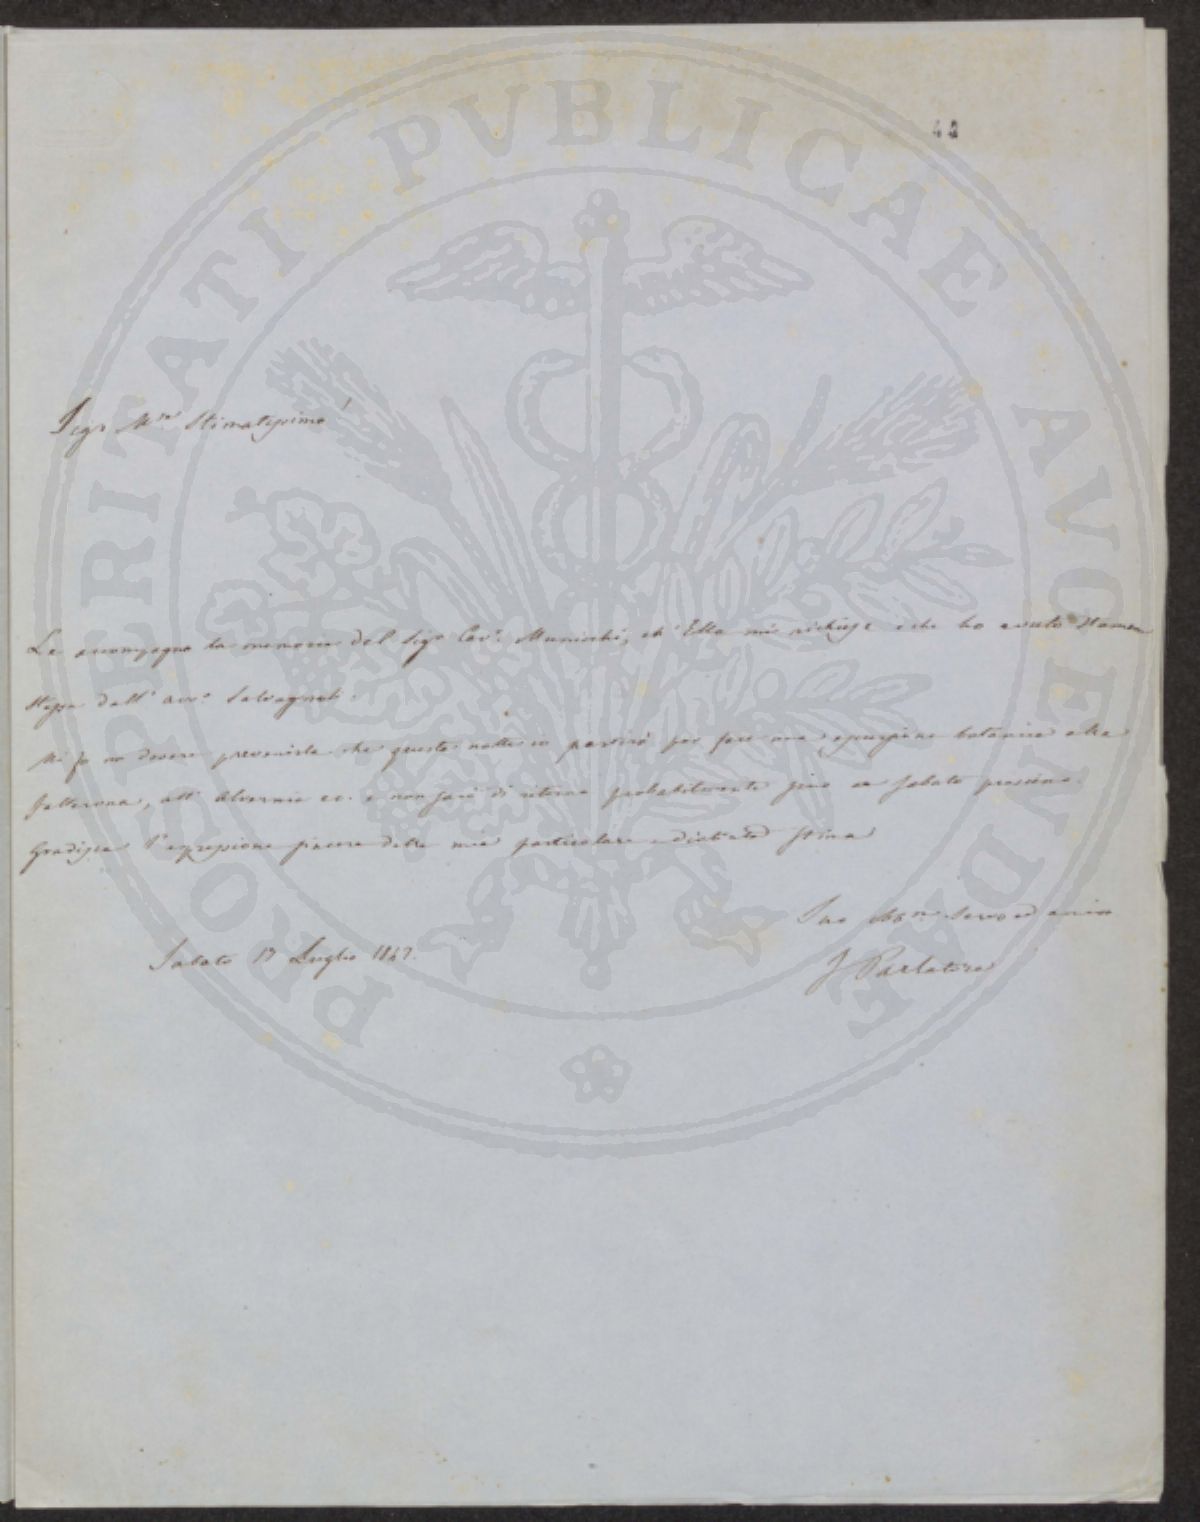 44
PROSPERITATI PVBLICAE AVGENDAE
Sigr. Mre. Stimatissimo!
Le accompagno la memoria del Sigr. Cavr. ch'Ella mi richiese e che ho avuto stamane
stessa dall'avv.o Salvagnoli.
Mi fo un dovere prevenirla che questa notte io partirò per fare una escursione botanica alla
Falterona, all'Alvernia ec. e non sarò di ritorno probabilmente fino a sabato prossimo.
Gradisca l'espressione sincera della mia particolare e distinta stima
Suo servo ed amico
Sabato 17 Luglio 1847.
F Parlatore